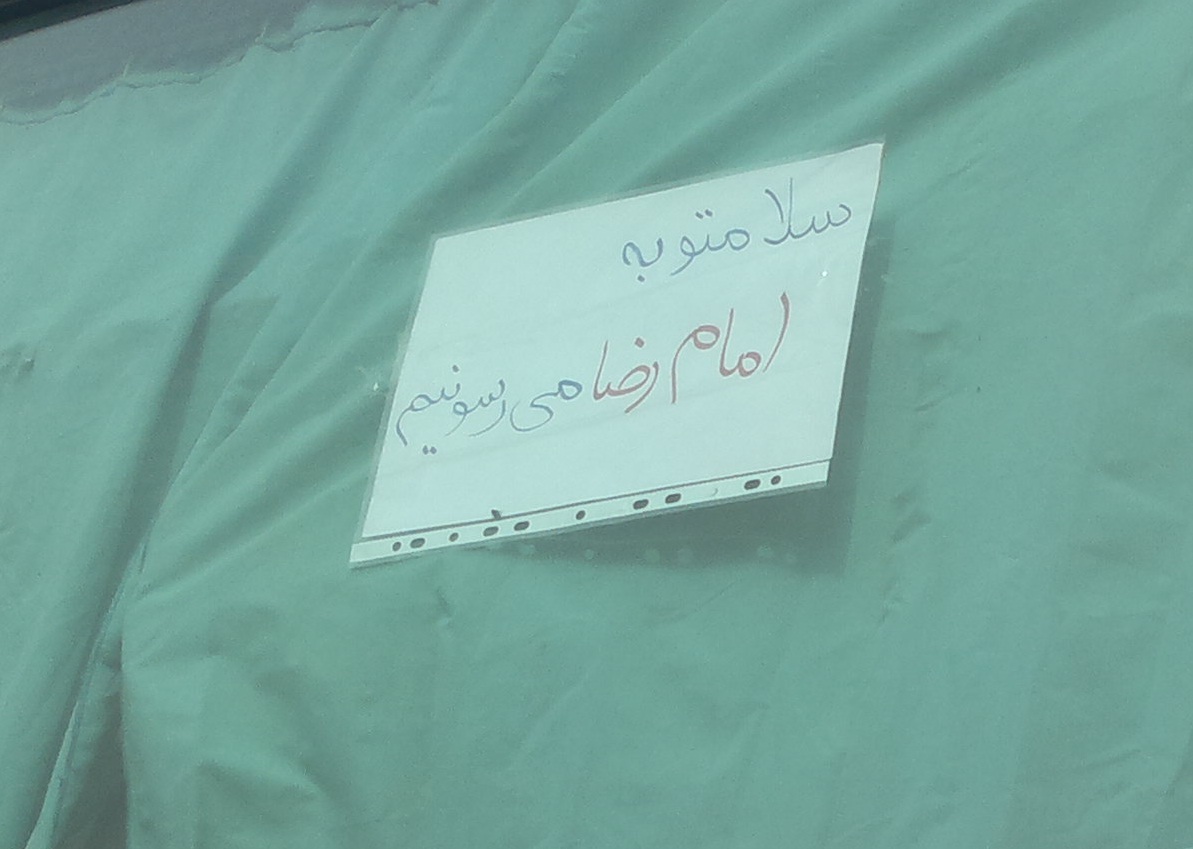 سلامتو به
امام رضا می رسونیم